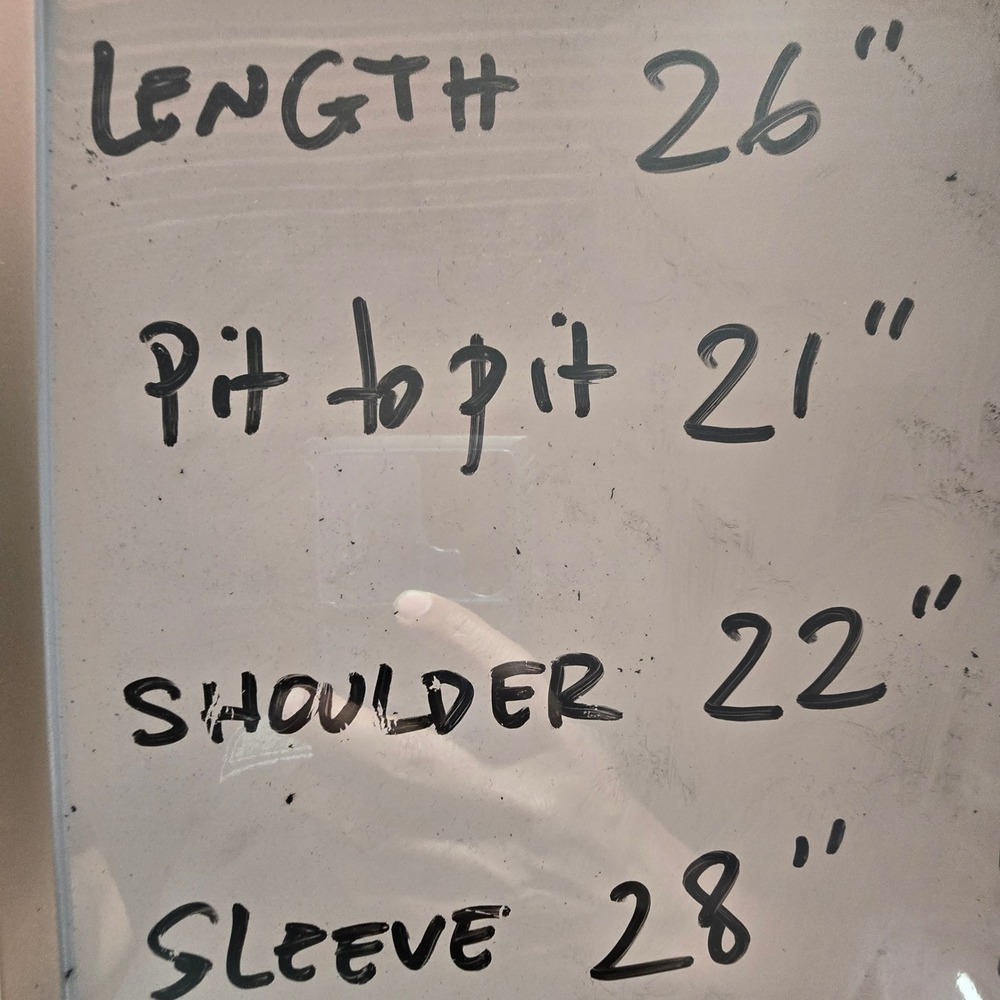 LENGTH 26"
Pit to pit 21"
SHOULDER 22"
SLEEVE 28"